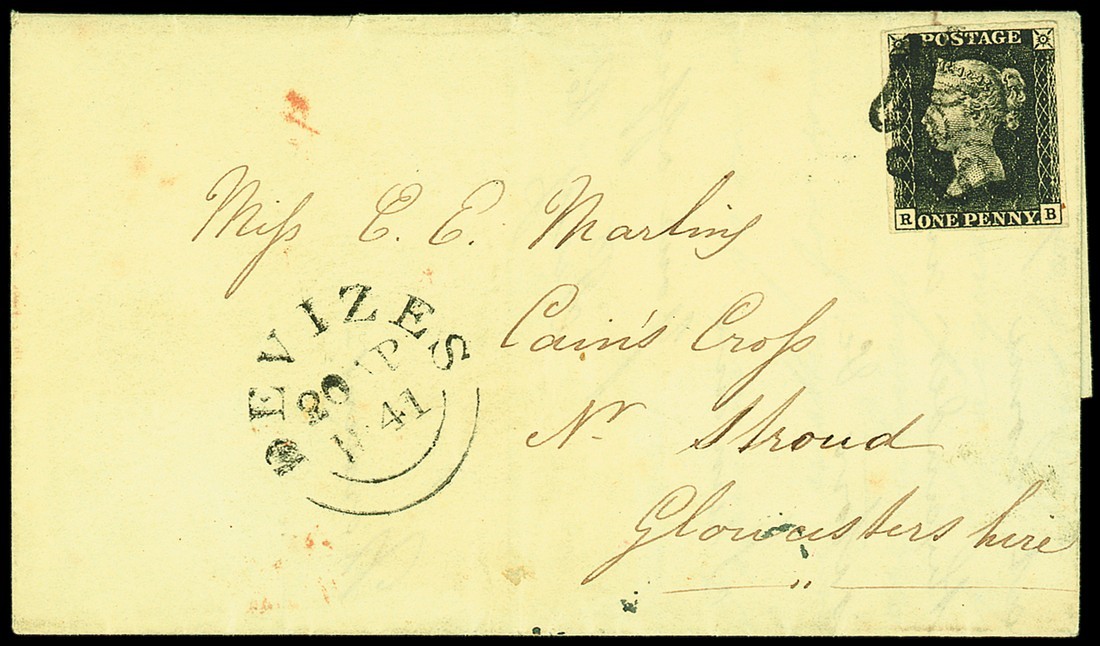 POSTAGE
R ONE PENNY. B
Miſs E. E. Marling
Cain's Croſs
Nr Stroud
Gloucestershire
DEVIZES
20 AP
1841